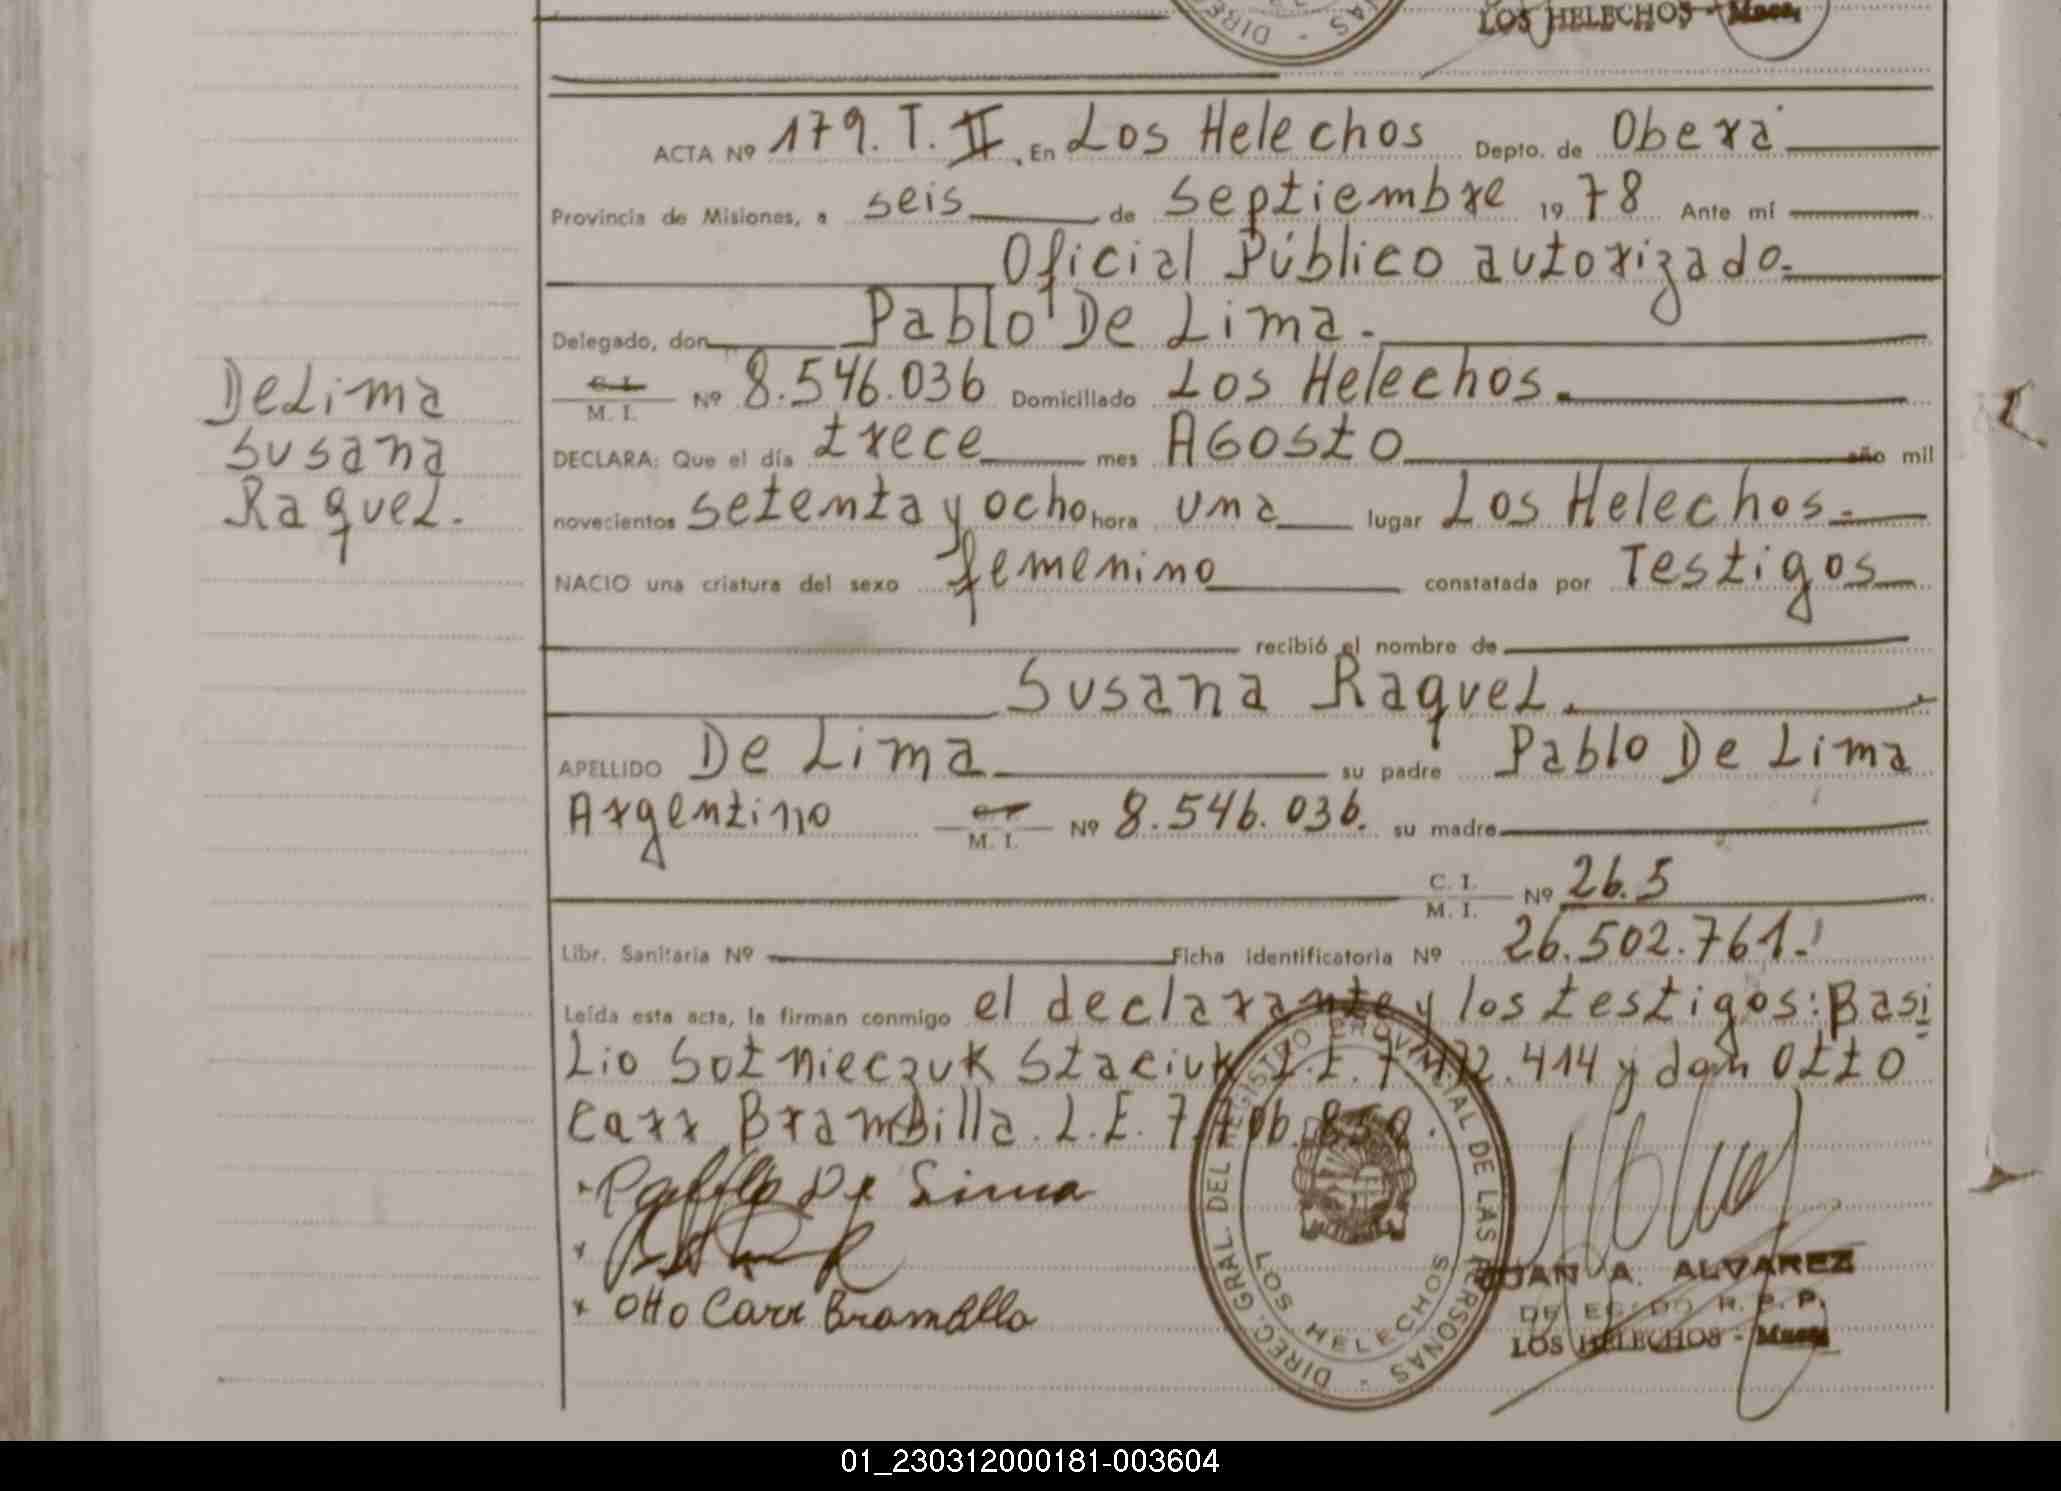 DIREC.
NAS
LOS HELECHOS - Mnes.
ACTA Nº 179. T. II En Los Helechos Depto. de Oberá
Provincia de Misiones, a seis de septiembre 1978 Ante mí
Oficial Público autorizado.
Delegado, don Pablo De Lima.
C. I. / M. I. Nº 8.546.036 Domiciliado Los Helechos.
DeLima
Susana
Raquel.
DECLARA: Que el día trece mes Agosto año mil
novecientos setenta y ocho hora una lugar Los Helechos.
NACIO una criatura del sexo femenino constatada por Testigos
recibió el nombre de
Susana Raquel.
APELLIDO De Lima su padre Pablo De Lima
Argentino M. I. Nº 8.546.036. su madre
C. I. / M. I. Nº 26.5
Libr. Sanitaria Nº Ficha identificatoria Nº 26.502.761.-
Leída esta acta, la firman conmigo el declarante y los testigos: Basi
Lio Sotnieczuk Staciuk L.E. 7.472.414 y don Otto
Carr Brambilla. L.E.
Pablo De Lima
Otto Carr Brambilla
DIREC. GRAL. DEL REGISTRO PROVINCIAL DE LAS PERSONAS -
LOS HELECHOS
JUAN A. ALVAREZ
R. P. P.
LOS HELECHOS - Mnes.
01_230312000181-003604